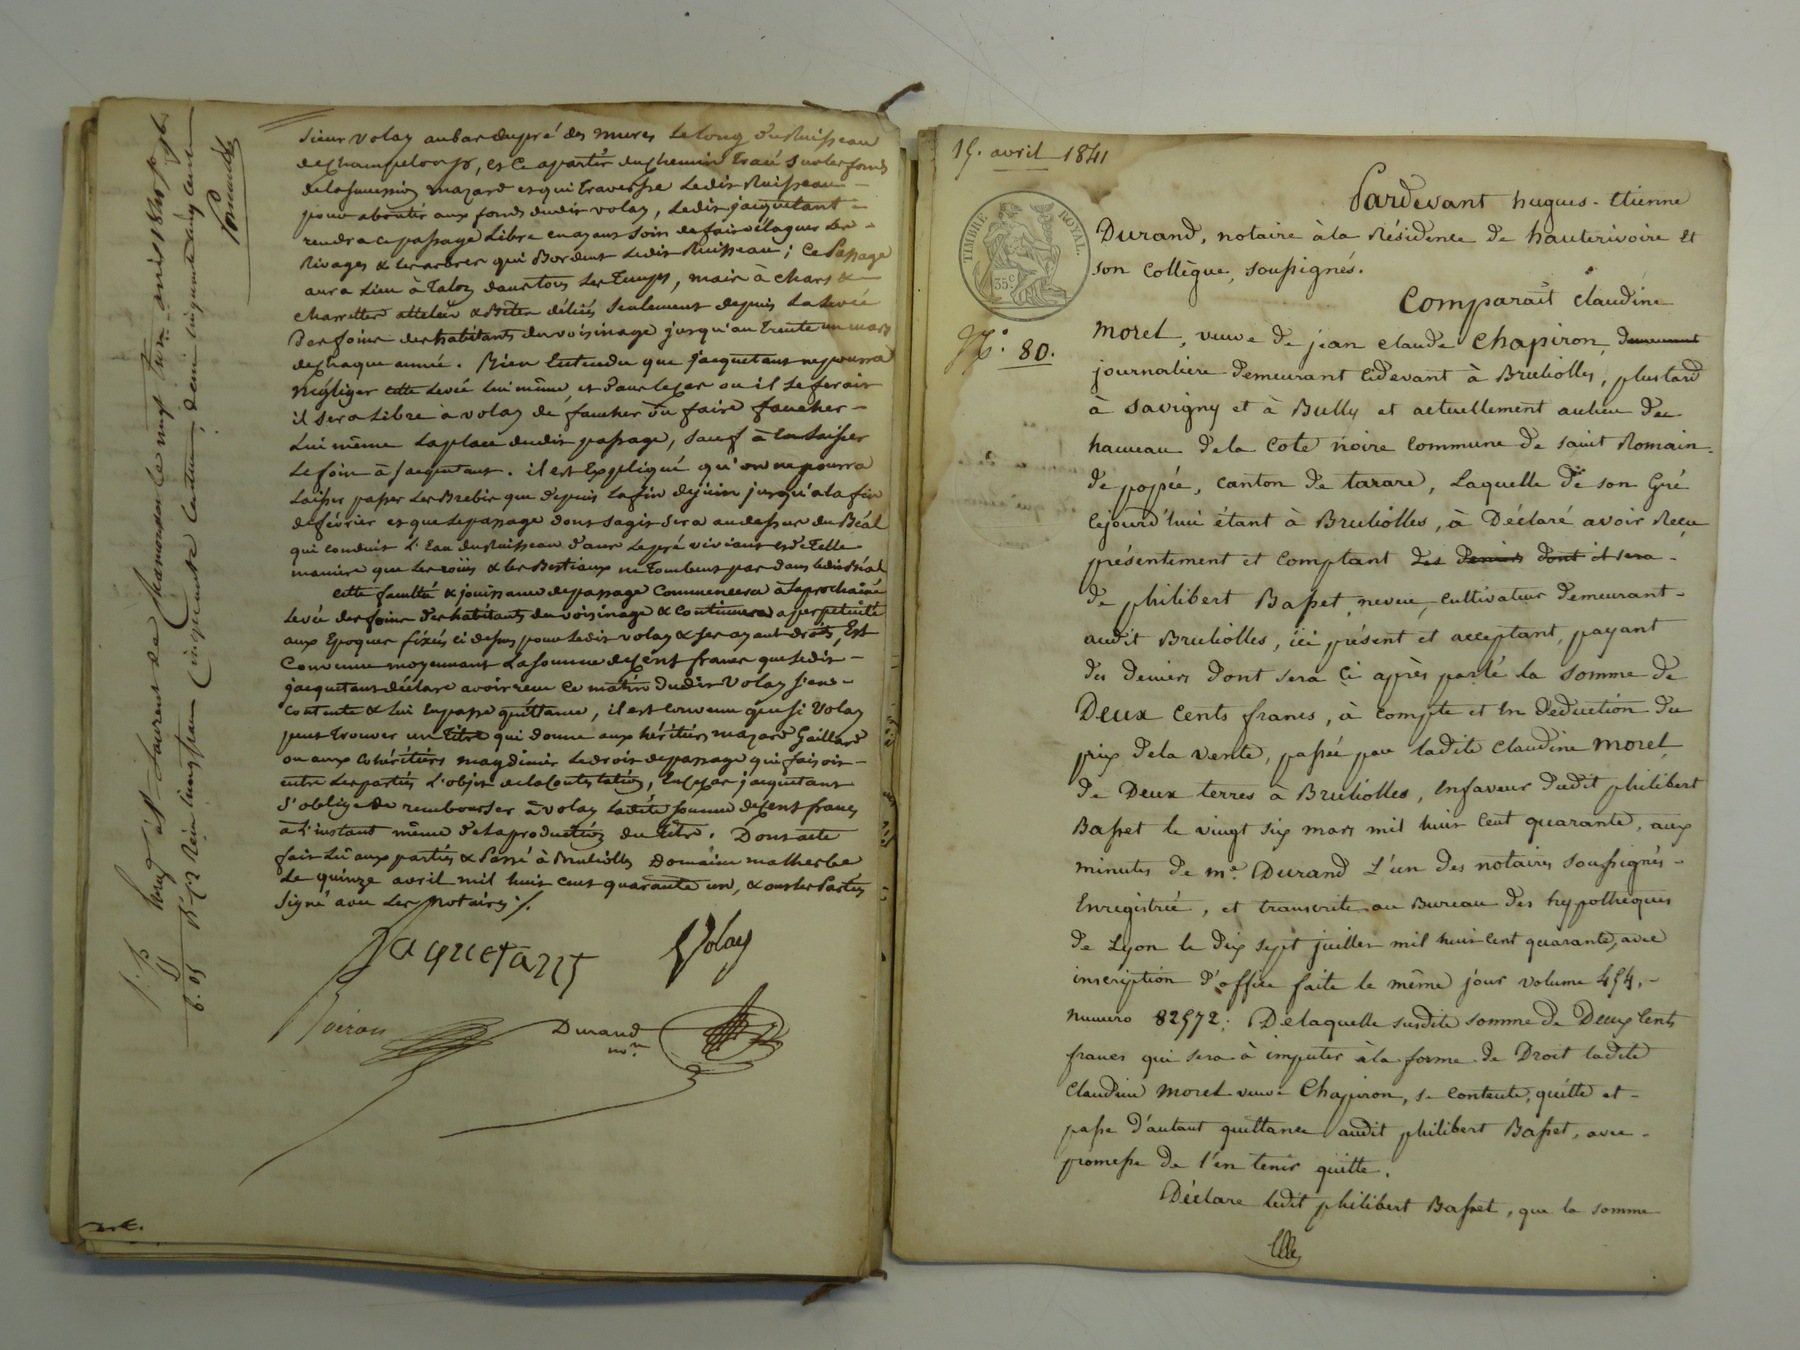 sieur Volay au bas du pré des mures le long du Ruisseau
de Champelong, et ce apartir du chemin tracé sur les fonds
de la succession mazard et qui traverse ledit Ruisseau -
pour aboutir aux fonds dudit volay, ledit jacquetant -
rendra ce passage libre en ayant soin de faire élaguer les -
Rivages & les arbres qui Bordent ledit Ruisseau ; Ce Passage
aura lieu à talon dans tous les temps, mais à chars &
charrettes attelées & Bêtes déliées seulement depuis la levée
Des foins des habitants du voisinage jusqu'au trente un mars
de chaque année. Bien Entendu que jacquetant ne pourra
négliger cette levée lui même et dans le cas ou il le ferait
il sera libre à volay de faucher ou faire faucher -
Lui même la place dudit passage, sauf à laisser
le foin à jacquetant. il est Expliqué qu'on ne pourra
laisser passer les Brebis que depuis la fin de juin jusqu'a la fin
de février et que le passage dont s'agit sera au dessus du Béal
qui conduit L'Eau du Ruisseau dans le pré et de telle
manière que les & les Bestiaux ne tombent pas dans ledit Béal
Cette faculté & jouissance de passage Commencera à la prochaine
levée des foins des habitants du voisinage & continuera a perpetuité
aux Epoques fixées ci dessus pour ledit volay & ses ayant droits, Est
Convenue moyennant la somme de cent francs que ledit -
jacquetant déclare avoir reçu ce matin dudit Volay s'en -
contente & lui En passe quittance, il est convenu que si Volay
peut trouver un Titre qui donne aux héritiers mazard Gaillard
ou aux cohéritiers le droit de passage qui faisoit -
entre les parties L'objet de la Contestation, En ce cas jacquetant
S'oblige de rembourser à volay ladite somme de cent francs
à l'instant même de la production du titre. Dont acte
fait Lu aux parties & Passé à Brulliolles Domaine malherbe
Le quinze avril mil huit cent quarante un, & ont les Parties
Signé avec les Notaires ./.
Jaquetant Volay
Durand
nore
15. avril 1841
TIMBRE ROYAL.
35 c
No. 80.
Pardevant hugues-Etienne
Durand, notaire à la Résidence de hauterivoire et
son collègue, soussignés.
Comparait claudine
Morel, veuve de jean claude Chapiron, demeurant
journaliere demeurant cidevant à Brulliolles, plus tard
à Savigny et à Bully et actuellement au lieu du
hameau de la Cote noire commune de saint Romain.
de popée, canton de tarare, Laquelle de son Gré
cejourd'hui étant à Brulliolles, à Déclaré avoir Reçu
présentement et comptant des deniers dont il sera -
de philibert Basset neveu, cultivateur demeurant -
audit Brulliolles, ici présent et acceptant, payant
des deniers dont sera ci après parlé la somme de
Deux cents francs, à compte et en deduction du
prix de la vente, passée par ladite claudine morel
de Deux terres à Brulliolles, en faveur dudit philibert
Basset le vingt six mars mil huit cent quarante, aux
minutes de Me. Durand L'un des notaires soussignés -
Enregistrée, et transcrite au Bureau des hypothèques
de Lyon le dix sept juillet mil huit cent quarante, avec
inscription d'office faite le même jour volume 454, -
numero 82572 ; De laquelle susdite somme de Deux cents
francs qui sera à imputer à la forme de Droit ladite
Claudine Morel veuve Chapiron, se contente, quitte et -
passe d'autant quittance audit philibert Basset, avec -
promesse de l'en tenir quitte.
Déclare ledit philibert Basset, que la somme